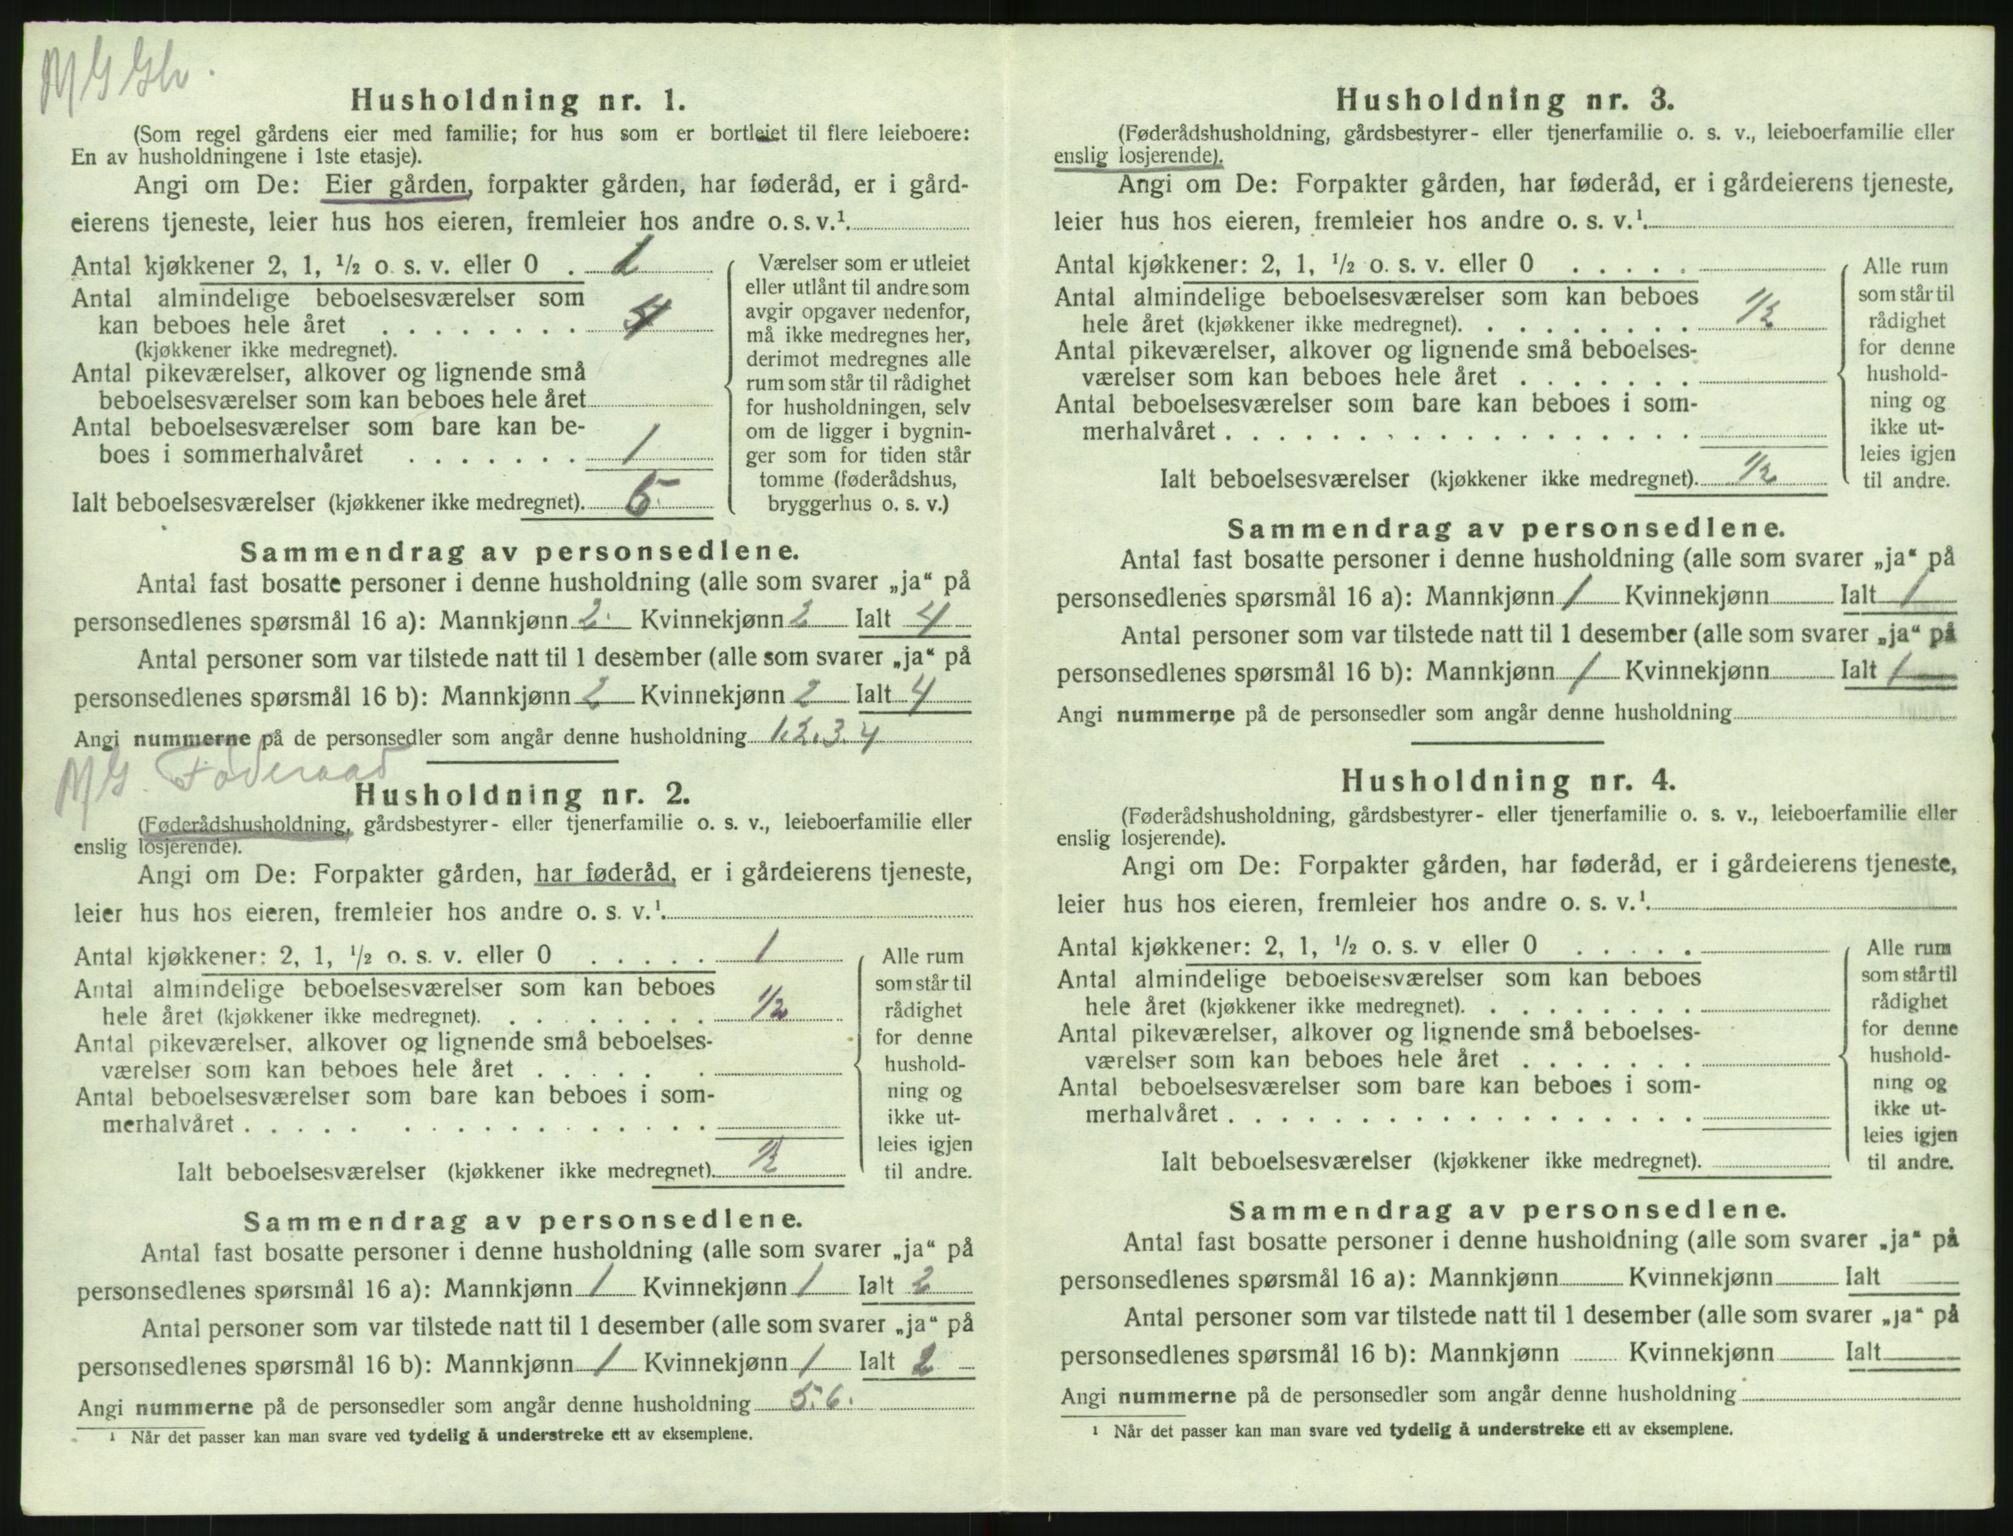 M G Gbr.
Husholdning nr. 1.
(Som regel gårdens eier med familie; for hus som er bortleiet til flere leieboere:
En av husholdningene i 1ste etasje).
Angi om De: Eier gården, forpakter gården, har føderåd, er i gård-
eierens tjeneste, leier hus hos eieren, fremleier hos andre o. s. v.¹
Antal kjøkkener 2, 1, ½ o. s. v. eller 0 . 1
Antal almindelige beboelsesværelser som
kan beboes hele året . . . . . . . . 4
(kjøkkener ikke medregnet).
Antal pikeværelser, alkover og lignende små
beboelsesværelser som kan beboes hele året
Antal beboelsesværelser som bare kan be-
boes i sommerhalvåret . . . . . . . 1
Ialt beboelsesværelser (kjøkkener ikke medregnet). 5
Værelser som er utleiet
eller utlånt til andre som
avgir opgaver nedenfor,
må ikke medregnes her,
derimot medregnes alle
rum som står til rådighet
for husholdningen, selv
om de ligger i bygnin-
ger som for tiden står
tomme (føderådshus,
bryggerhus o. s. v.)
Sammendrag av personsedlene.
Antal fast bosatte personer i denne husholdning (alle som svarer „ja“ på
personsedlenes spørsmål 16 a): Mannkjønn 2. Kvinnekjønn 2 Ialt 4
Antal personer som var tilstede natt til 1 desember (alle som svarer „ja“ på
personsedlenes spørsmål 16 b): Mannkjønn 2 Kvinnekjønn 2 Ialt 4
Angi nummerne på de personsedler som angår denne husholdning 1.2.3.4
M G. Føderaad
Husholdning nr. 2.
(Føderådshusholdning, gårdsbestyrer- eller tjenerfamilie o. s. v., leieboerfamilie eller
enslig losjerende).
Angi om De: Forpakter gården, har føderåd, er i gårdeierens tjeneste,
leier hus hos eieren, fremleier hos andre o. s. v.¹
Antal kjøkkener: 2, 1, ½ o. s. v. eller 0 . . . . . 1
Antal almindelige beboelsesværelser som kan beboes
hele året (kjøkkener ikke medregnet). . . . . . . . 1/2
Antal pikeværelser, alkover og lignende små beboelses-
værelser som kan beboes hele året . . . . . .
Antal beboelsesværelser som bare kan beboes i som-
merhalvåret . . . . . . . . . . . . . . . .
Ialt beboelsesværelser (kjøkkener ikke medregnet). 1/2
Alle rum
som står til
rådighet
for denne
hushold-
ning og
ikke ut-
leies igjen
til andre.
Sammendrag av personsedlene.
Antal fast bosatte personer i denne husholdning (alle som svarer „ja“ på
personsedlenes spørsmål 16 a): Mannkjønn 1 Kvinnekjønn 1 Ialt 2
Antal personer som var tilstede natt til 1 desember (alle som svarer „ja“ på
personsedlenes spørsmål 16 b): Mannkjønn 1 Kvinnekjønn 1 Ialt 2
Angi nummerne på de personsedler som angår denne husholdning 5.6.
¹ Når det passer kan man svare ved tydelig å understreke ett av eksemplene.
Husholdning nr. 3.
(Føderådshusholdning, gårdsbestyrer- eller tjenerfamilie o. s. v., leieboerfamilie eller
enslig losjerende).
Angi om De: Forpakter gården, har føderåd, er i gårdeierens tjeneste,
leier hus hos eieren, fremleier hos andre o. s. v.¹
Antal kjøkkener: 2, 1, ½ o. s. v. eller 0 . . . . .
Antal almindelige beboelsesværelser som kan beboes
hele året (kjøkkener ikke medregnet). . . . . . . . 1/2
Antal pikeværelser, alkover og lignende små beboelses-
værelser som kan beboes hele året . . . . . . .
Antal beboelsesværelser som bare kan beboes i som-
merhalvåret . . . . . . . . . . . . . . . . . .
Ialt beboelsesværelser (kjøkkener ikke medregnet). 1/2
Alle rum
som står til
rådighet
for denne
hushold-
ning og
ikke ut-
leies igjen
til andre.
Sammendrag av personsedlene.
Antal fast bosatte personer i denne husholdning (alle som svarer „ja“ på
personsedlenes spørsmål 16 a): Mannkjønn 1 Kvinnekjønn Ialt 1
Antal personer som var tilstede natt til 1 desember (alle som svarer „ja“ på
personsedlenes spørsmål 16 b): Mannkjønn 1 Kvinnekjønn Ialt 1
Angi nummerne på de personsedler som angår denne husholdning
Husholdning nr. 4.
(Føderådshusholdning, gårdsbestyrer- eller tjenerfamilie o. s. v., leieboerfamilie eller
enslig losjerende).
Angi om De: Forpakter gården, har føderåd, er i gårdeierens tjeneste,
leier hus hos eieren, fremleier hos andre o. s. v.¹
Antal kjøkkener: 2, 1, ½ o. s. v eller 0 . . . . .
Antal almindelige beboelsesværelser som kan beboes
hele året (kjøkkener ikke medregnet). . . . . . . .
Antal pikeværelser, alkover og lignende små beboelses-
værelser som kan beboes hele året . . . . . . .
Antal beboelsesværelser som bare kan beboes i som-
merhalvåret . . . . . . . . . . . . . . . . . .
Ialt beboelsesværelser (kjøkkener ikke medregnet).
Alle rum
som står til
rådighet
for denne
hushold-
ning og
ikke ut-
leies igjen
til andre.
Sammendrag av personsedlene.
Antal fast bosatte personer i denne husholdning (alle som svarer „ja“ på
personsedlenes spørsmål 16 a): Mannkjønn Kvinnekjønn Ialt
Antal personer som var tilstede natt til 1 desember (alle som svarer „ja“ på
personsedlenes spørsmål 16 b): Mannkjønn Kvinnekjønn Ialt
Angi nummerne på de personsedler som angår denne husholdning
¹ Når det passer kan man svare ved tydelig å understreke ett av eksemplene.